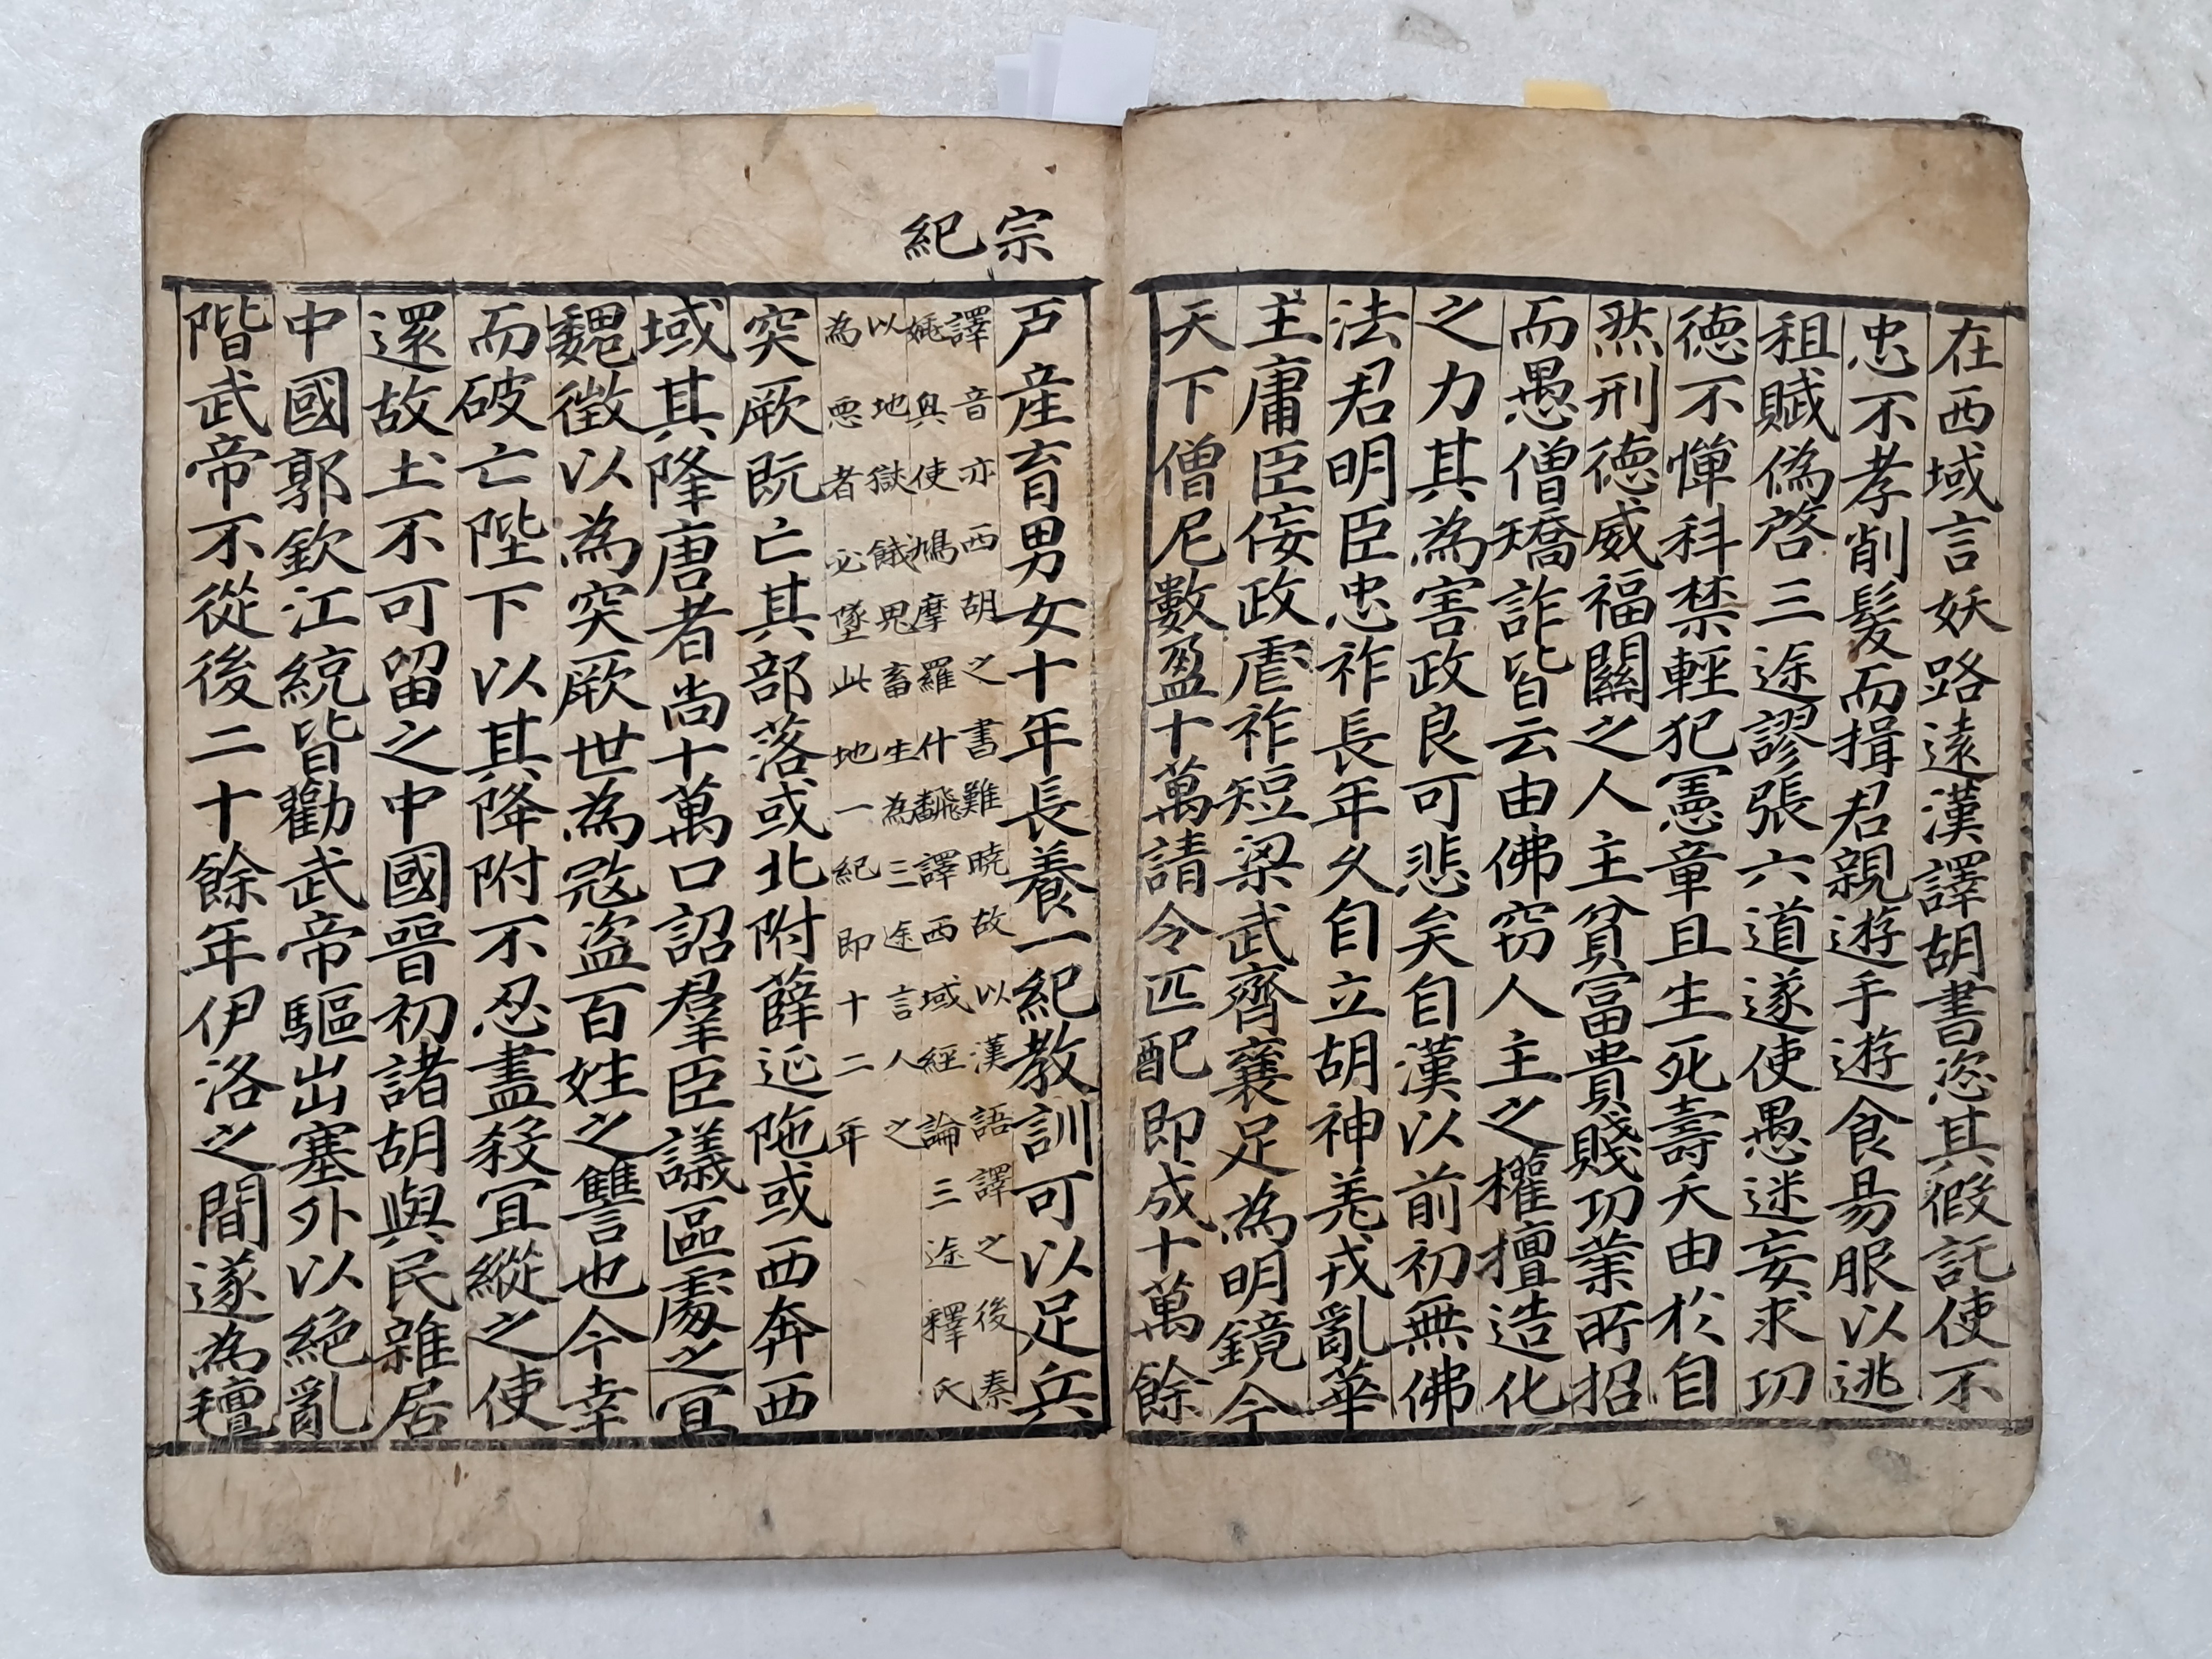 在西域言妖路遠漢譯胡書恣其假託使不
忠不孝削髮而揖君親遊手遊食易服以逃
租賦偽啓三途謬張六道遂使愚迷妄求功
德不憚科禁輕犯憲章且生死壽夭由於自
然刑德威福關之人主貧富貴賤功業所招
而愚僧矯詐皆云由佛窃人主之權擅造化
之力其為害政良可悲矣自漢以前初無佛
法君明臣忠祚長年久自立胡神羗戎亂華
主庸臣侫政虐祚短梁武齊襄足為明鏡今
天下僧尼數盈十萬請令匹配即成十萬餘
宗紀
戶産育男女十年長養一紀教訓可以足兵
譯音亦西胡之書難曉故以漢語譯之後秦
姚興使鳩摩羅什飜譯西域經論三途釋氏
以地獄餓鬼畜生為三途言人之
為惡者必墜此地一紀即十二年
突厥既亡其部落或北附薛延陁或西奔西
域其降唐者尚十萬口詔羣臣議區處之宜
魏徵以為突厥世為宼盜百姓之讐也今幸
而破亡陛下以其降附不忍盡殺宜縱之使
還故土不可留之中國晉初諸胡與民雜居
中國郭欽江統皆勸武帝驅出塞外以絕亂
階武帝不從後二十餘年伊洛之間遂為氊